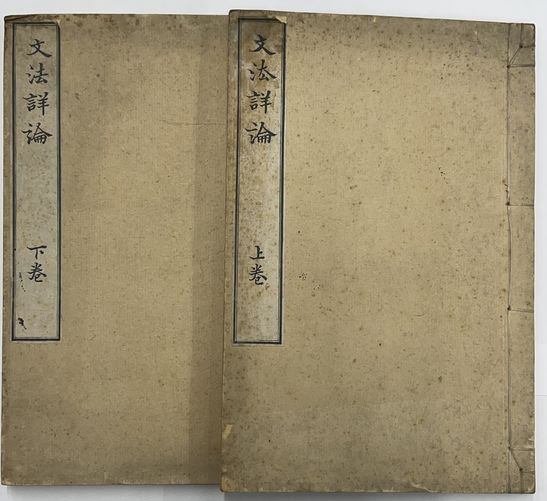 文法詳論 上卷
文法詳論 下卷